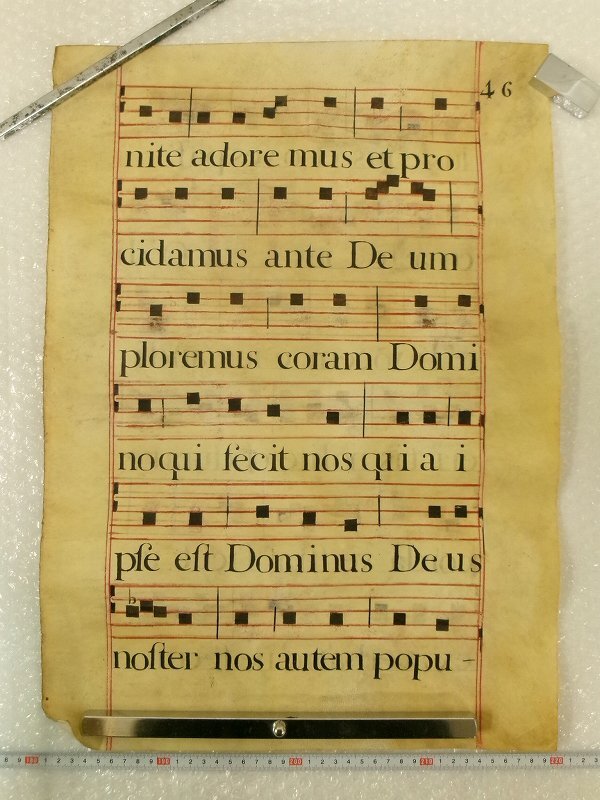 46
nite adore mus et pro
cidamus ante De um
ploremus coram Domi
no qui fecit nos qui a i
pſe eſt Dominus De us
noſter nos autem popu -